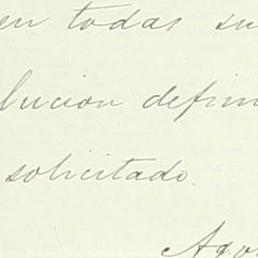 en todas su
lucion defin
solicitado.
Ago